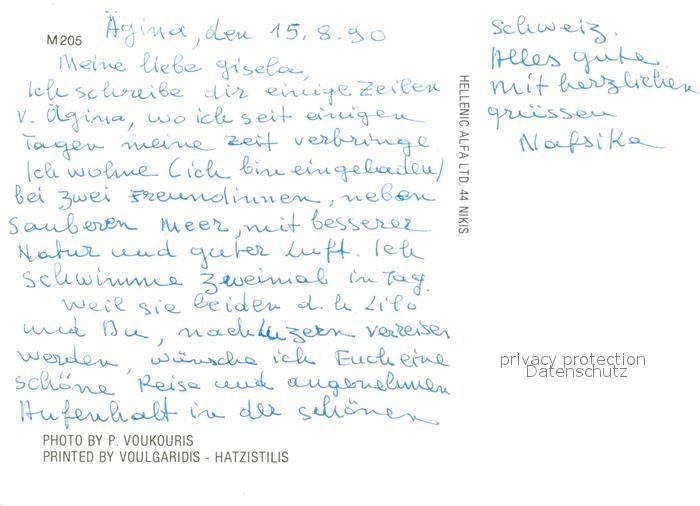 M205
Ägina, den 15.8.90
Meine liebe gisela,
Ich schreibe dir einige Zeilen
v. Ägina, wo ich seit einigen
Tagen meine zeit verbringe.
Ich wohne (ich bin eingeladen)
bei zwei Freundinnen, neben
sauberen Meer, mit besserer
Natur und guter Luft. Ich
schwimme zweimal in Tag.
Weil sie beiden d.h. Lilo
und Du, nach Luzern verreisen
werden, wünsche ich Euch eine
schöne Reise und angenehmen
Aufenhalt in der schönen
schweiz.
Alles gute
mit herzlichen
grüssen
Nafsika
HELLENIC ALFA LTD. 44 NIKIS
privacy protection
Datenschutz
PHOTO BY P. VOUKOURIS
PRINTED BY VOULGARIDIS - HATZISTILIS